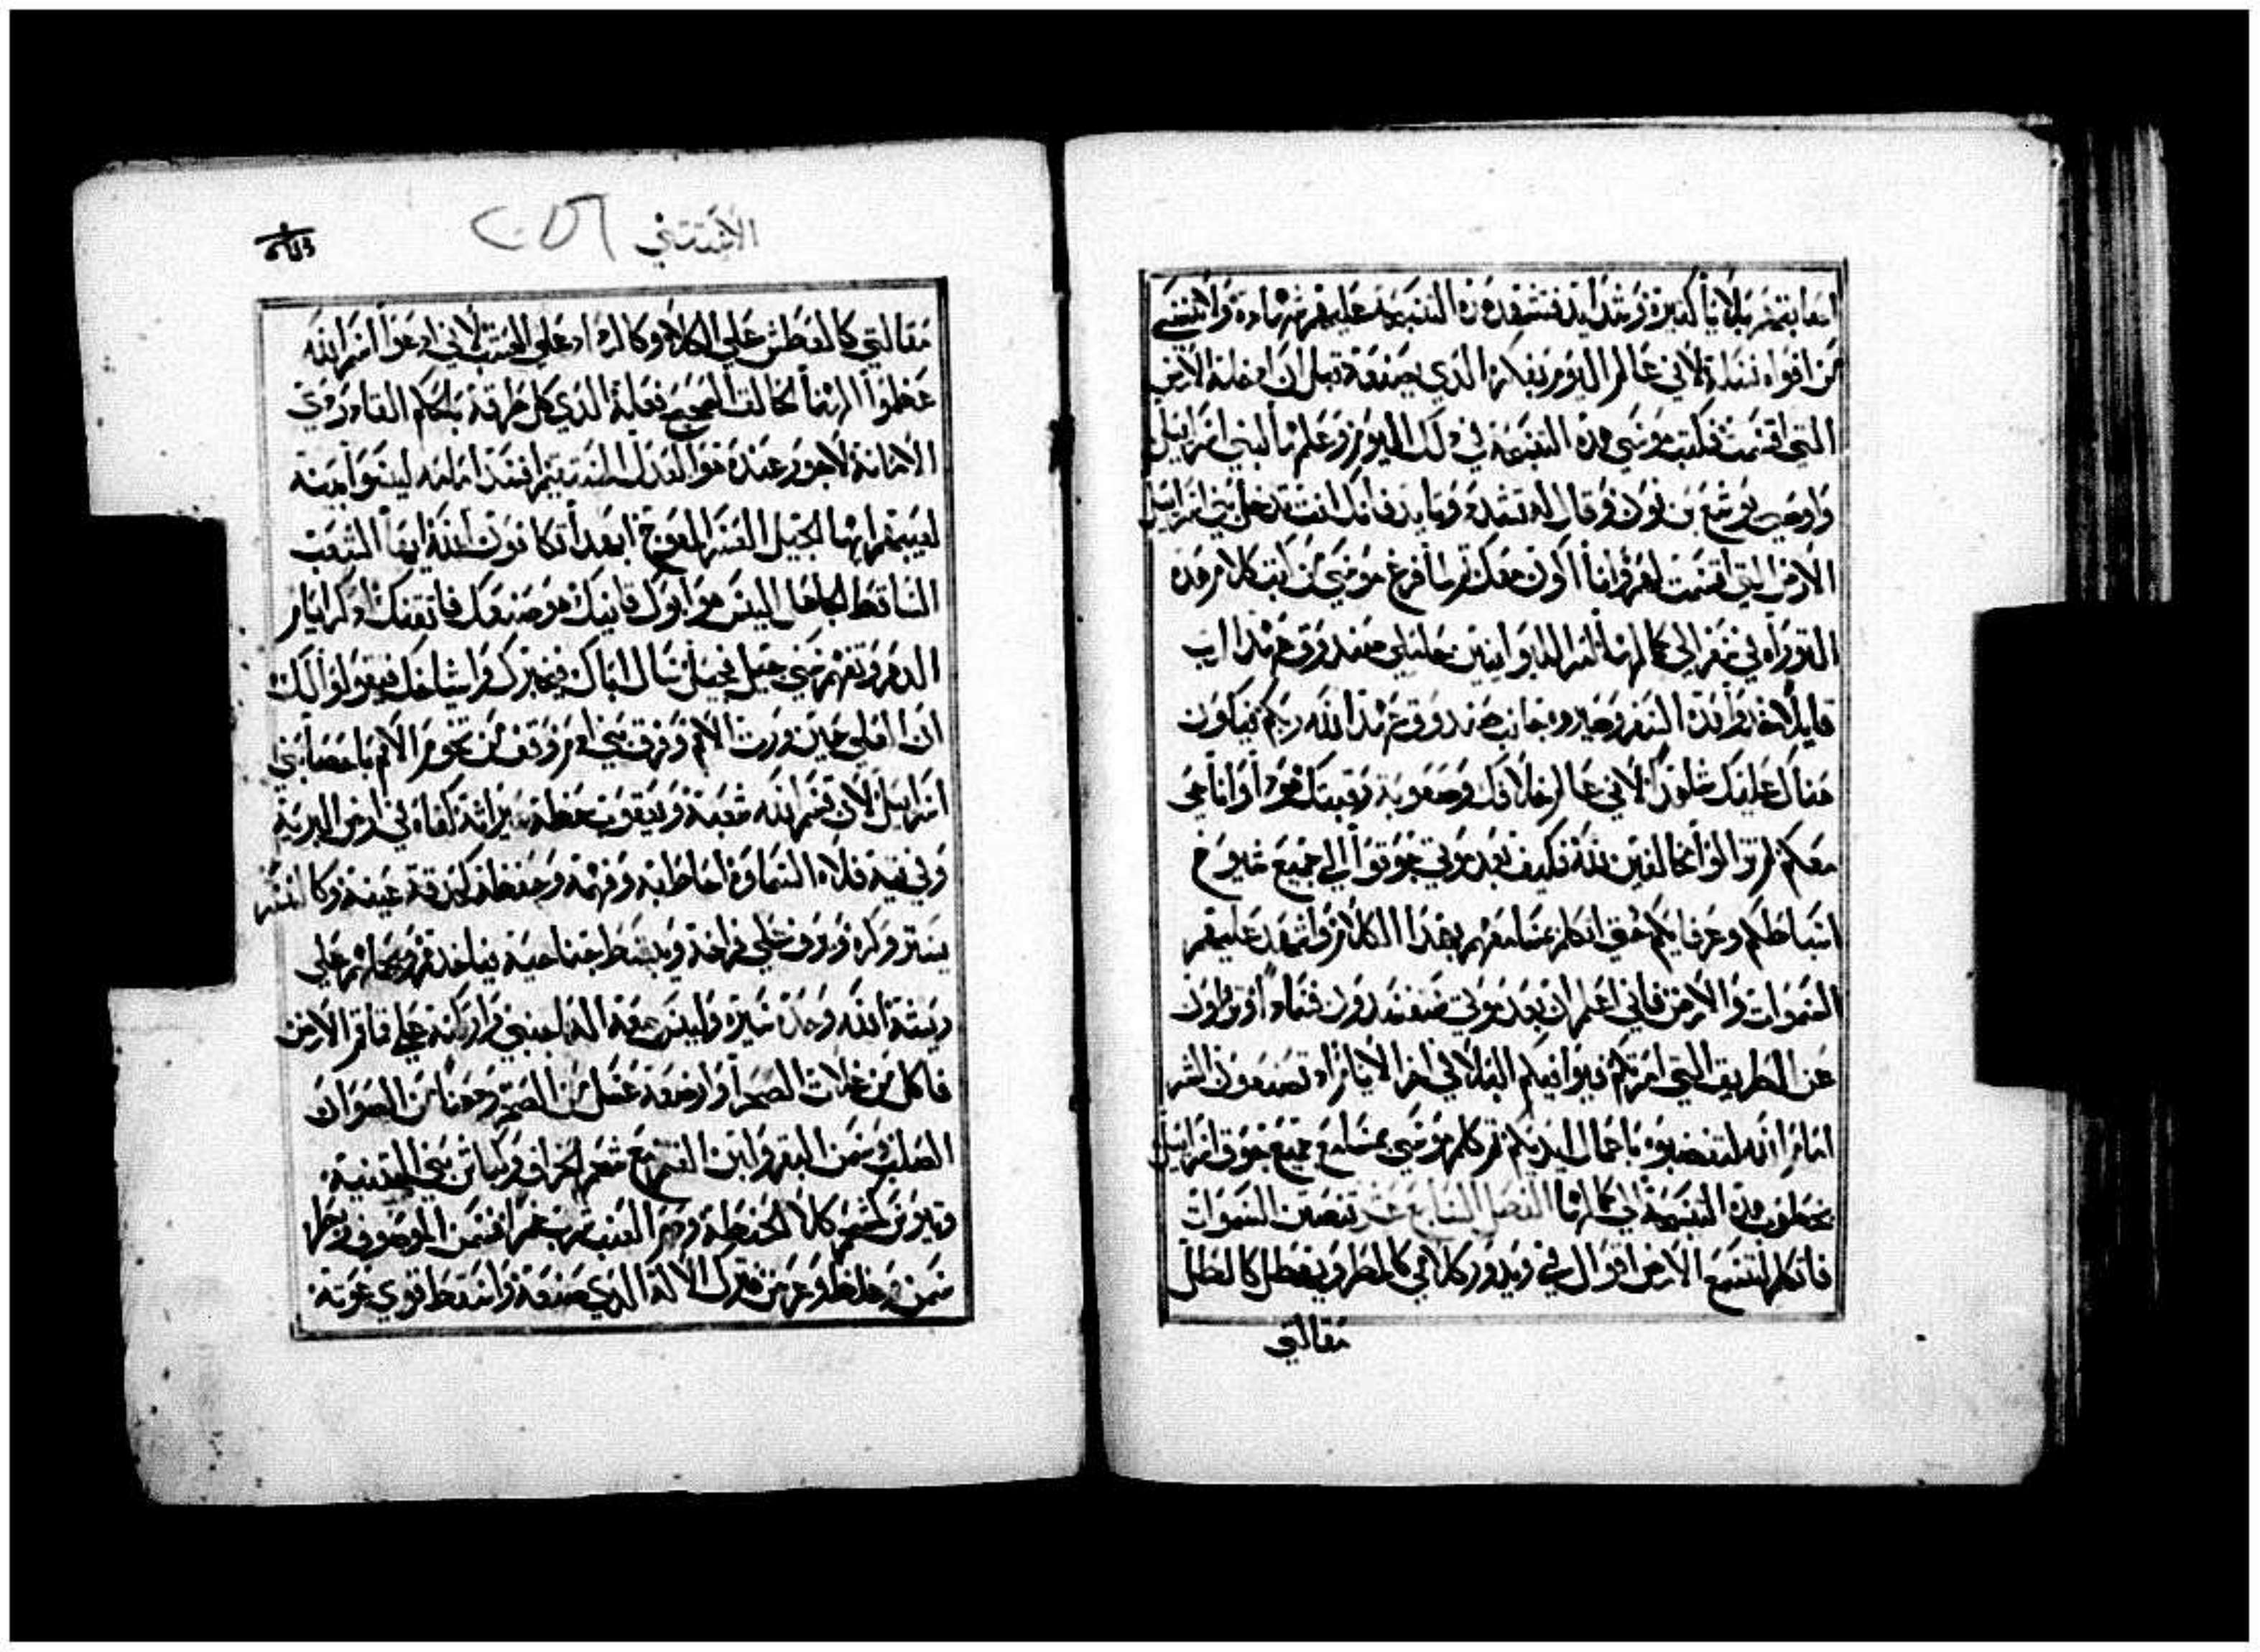 اصابتهم بلايا كتيرة وشدايد فتشهد هذه التسبحة عليهم شهادة ولا تنسي
من افواه نسله لاني عالم اليوم بفكره الذي يصنعه قبل ان ادخله الارض
التي اقسمت فكتب موسي هذه التسبحة في ذلك اليوم وعلمها لبني اسراييل
واوصي يوشع بن نون وقال له تشدد وتايد فانك انت تدخل بني اسراييل
الارض التي اقسمت لهم وانا اكون معك ثم لما فرغ موسي من كتب كلام هذه
التوراه في سفر الي كمالها امر الليوانيين حاملين صندوق عهد الرب
قايلا خدوا هذه السفر وصيروه جانب صندوق عهد الله ربكم فيكون
هناك عليك شاهدا لاني عالم خلافك وصعوبة رقبتك هودا وانا حي
معكم لم تزالوا مخالفين لله فكيف بعد موتي جوقوا الي جميع شيوخ
اسباطكم وعرفايكم حتي اتكلم بمسامعهم بهذا الكلام واشهد عليهم
السموات والارض فاني اعلم ان بعد موتي ستفسدون فسادا وتزولون
عن الطريق التي امرتكم فيوافيكم البلا في اخر الايام اد تصنعون الشر
امام الله لتغضبوه باعمال ايديكم ثم كلم موسي بمسامع جميع جوق اسراييل
بخطوب هذه التسبحة الي كمالها الفصل السابع عشر تنصتين السموات
فاتكلم لتسمع الارض اقوال في ويدور كلامي كالمطر ويهطل كالطل
مقالتي
الاستتني
مقالتي كالغطش علي الكلا وكالرداد علي العشب لاني ادعوا اسم الله
عظموا الهنا الخالق الصحيح فعاله الذي كل طرقه باحكام القادر دي
الامانة لا جور عنده هو العدل المستقيم افسد امامه ليسوا بنيه
لعيبهم ايها الجيل العسر المعوج ابهدا تكافون الله ايها الشعب
الساقط الجاهل اليس هو ابوك قانيك هو صنعك فاتقنك ادكر ايام
الدهر وتفهم سني جيل فجيل سال اباك فيخبرك واشياخك فيقولوا لك
ان العلي حين ورت الامم وفرق بني ادم ووقف من تخوم الامم باحصا بني
اسراييل لان قسم الله شعبة ويعقوب حظه ميراثه كفاه في ارض البرية
وفي تيه فلاه السماوه احاط به وفهمه وحفظه كحدقة عينه وكالنسر
يستر وكره ويرف علي فراخه ويبسط جناحيه فياخدهم ويحملهم علي
ريشه الله وحده سيره وليس معه اله اجنبي واركبه علي قاقم الارض
فاكل من غلات الصحرا وارضعه عسل من الصخر ودهنا من الصوان
الصلب سمن البقر ولبن الغنم مع شحم الخراف وكباش بني البتنية
وتيوس لشحم كلا الحنطة وخمر العنب شرب خمرا فسمن الموصوف وبطر
سمن وغلظ وعرض وترك الاله الذي صنعه واسقط قوي غوثه